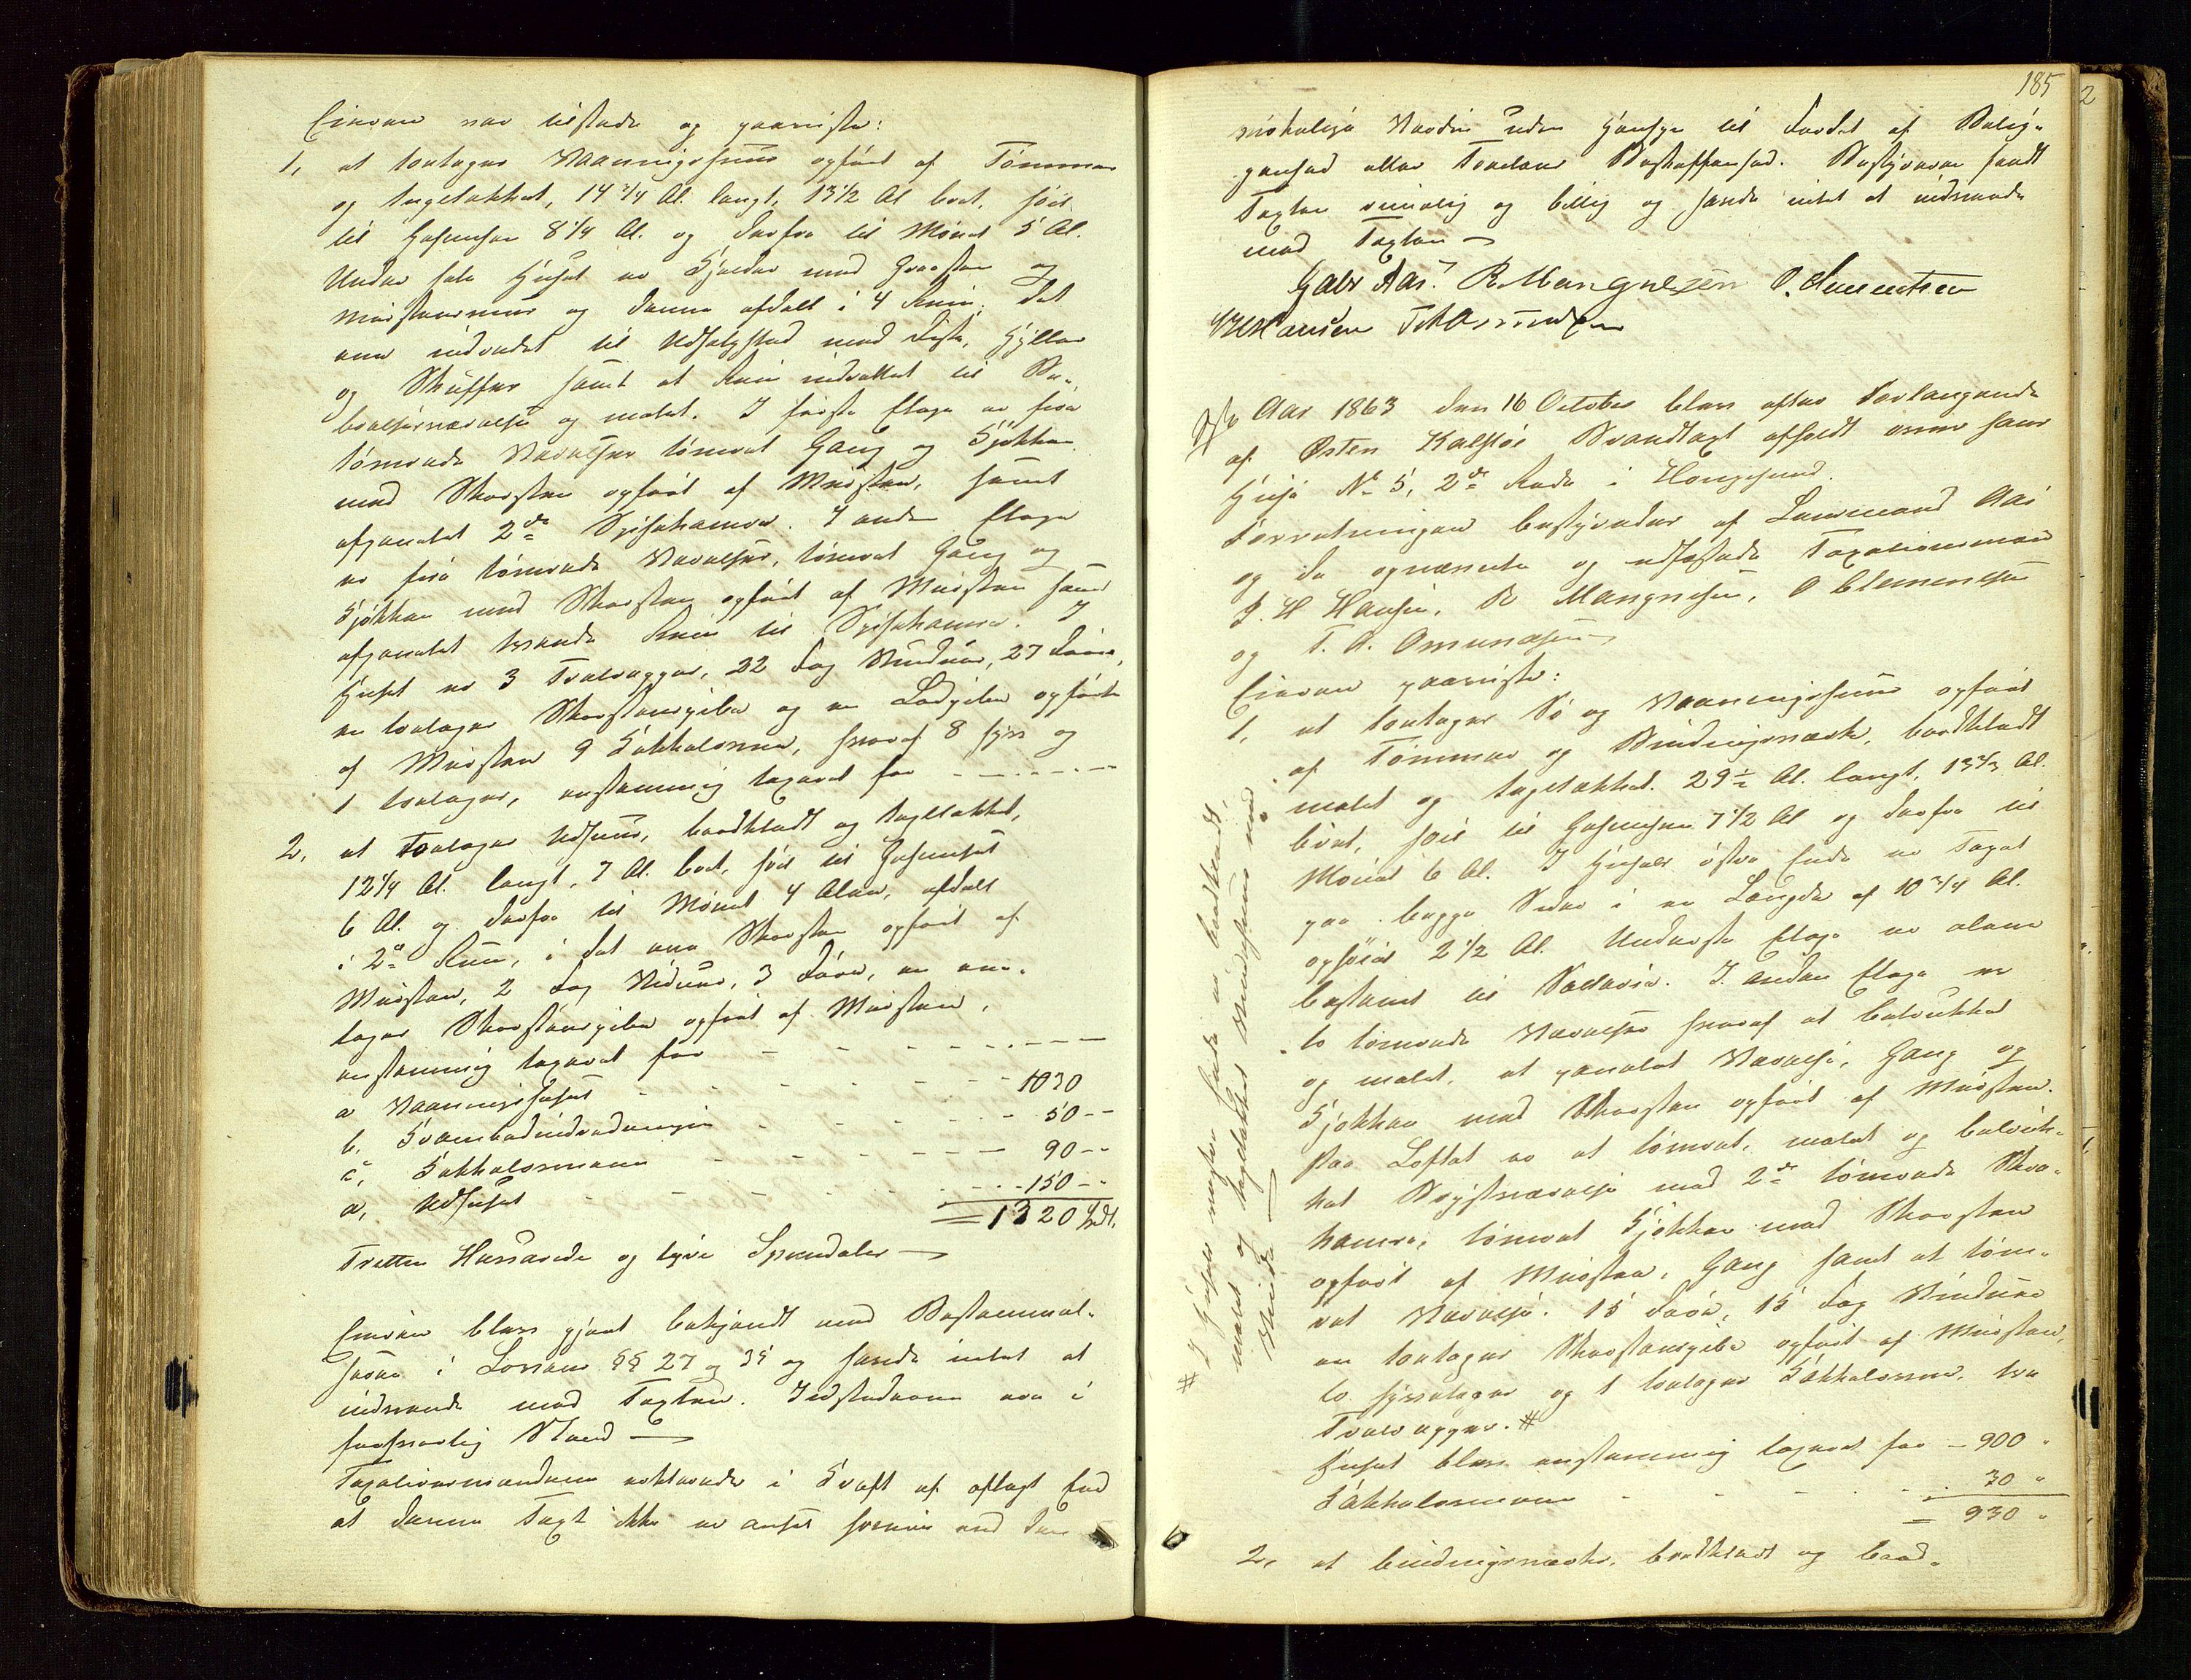 Eieren var tilstede og paaviste:
1, et toetages Vaaningshuus opført af Tømmer
og tagetækket, 14 3/4 Al. langt, 13 1/2 Al bred, høit
til Gesimsen 8 1/4 Al. og derfra til Mønet 5 Al.
Under hele Huset er Kjelder med Graasteen og
Muursteensmuur og denne afdelt i 4 Rum, det
ene indredet til Udsalgssted med Diske, Hylder
og Skuffer samt et Rum indrettet til Be-
boelsesværelse og malet. I første Etage er fire
tømrede Værelser tømret Gang og Kjøkken
med Skorsteen opført af Muursteen, samt
afpanelet 2de Spisekamre. I anden Etage
er fire tømrede Værelser, tømret Gang og
Kjøkken med Skorsteen opført af Muursteen samt
afpanelet tvende Rum til Spisekamre. I
Huset er 3 Trætrapper, 22 Fag Vinduer, 27 Døre,
en toetages Skorsteenspibe og en Lodpibe opførte
af Muursteen 9 Kakkelovne, hvoraf 8 fyr og
1 toetages, enstemmig taxeret for - - - - -
2, et Toetages Udhuus, bordklædt og tagtækket,
12 1/4 Al. langt, 7 Al. bred, høit til Gesimset
6 Al. og derfra til Mønet 4 Alen, afdelt
i 2de Rum, i det ene Skorsteen opført af
Muursteen, 2 Fag Vinduer, 3 Døre, en een-
tages Skorsteenspibe opført af Muursteen,
enstemmig taxeret for - - - - - - - -
a Vaaningshuset - - - - - - 1030
b, Krambodindredningen - - - - 50 - -
c, Kakkelovnene - - - - 90 - -
d, Udhuset - - - - - 150 - -
= 1320 Spdl.
Tretten Hundrede og tyve Speciedaler —
Eieren blev gjort bekjendt med Bestemmel-
serne i Lovens §§ 27 og 35 og havde intet at
indvende mod Taxten. Ildstederne ere i
forsvarlig Stand —
Taxationsmændene erklærede i Kraft af aflagt Eed
at denne Taxt ikke er ansat høiere end den
185
virkelige Værdie uden Hensyn til Stedets Belig-
genhed eller Fordeles Beskaffenhed. Bestyreren fandt
Taxten rimelig og billig og havde intet at indvende
mod Taxten —
Gabr Aas. R Mangnesen O. Clementsen
J H Hansen T A Omundsen
Aar 1863 den 16 October blev efter Forlangende
af Østen Kalstøe Brandtaxt afholdt over hans
Huse No 5, 2de Rode i Haugesund.
Forretningen bestyredes af Lensmand Aas
og de opnævnte og edfæstede Taxationsmænd
J. H Hansen, R Mangnesen, O Clementsen
og T. A. Omundsen —
Eieren paaviste:
1, et toetages Sø og Vaaningshuus opført
af Tømmer og Bindingsværk, bordklædt
malet og tagetækket. 29 1/2 Al. langt, 13 1/2 Al.
bred, høit til Gesimsen 7 1/2 Al og derfra til
Mønet 6 Al. I Husets østre Ende er Taget
paa begge Sider i en Længde af 10 3/4 Al.
ophøiet 2 1/2 Al. Underste Etage er alene
bestemt til Salterie. I anden Etage er
to tømrede Værelser hvoraf et betrukket
og malet, et panelet Værelse, Gang og
Kjøkken med Skorsteen opført af Muursteen.
Paa Loftet er et tømret, malet og betruk-
ket Qvistværelse med 2de tømrede Skraa-
kamre, tømret Kjøkken med Skorsteen
opført af Muursteen, Gang samt et tøm-
ret Værelse. 15 Døre, 15 Fag Vinduer
en toetages Skorsteenspibe opført af Muursteen,
to fyretages og 1 toetages Kakkelovne, tre
Trætrapper. #
Huset blev enstemmig taxeret for - 900 "
Kakkelovnene - - - - - 30 "
= 930 "
2, et bindingsværks, bordklædt og bord-
# I Husets vestre Ende er bordklædt,
malet og tagetækket Vindehuus med
Vinde —